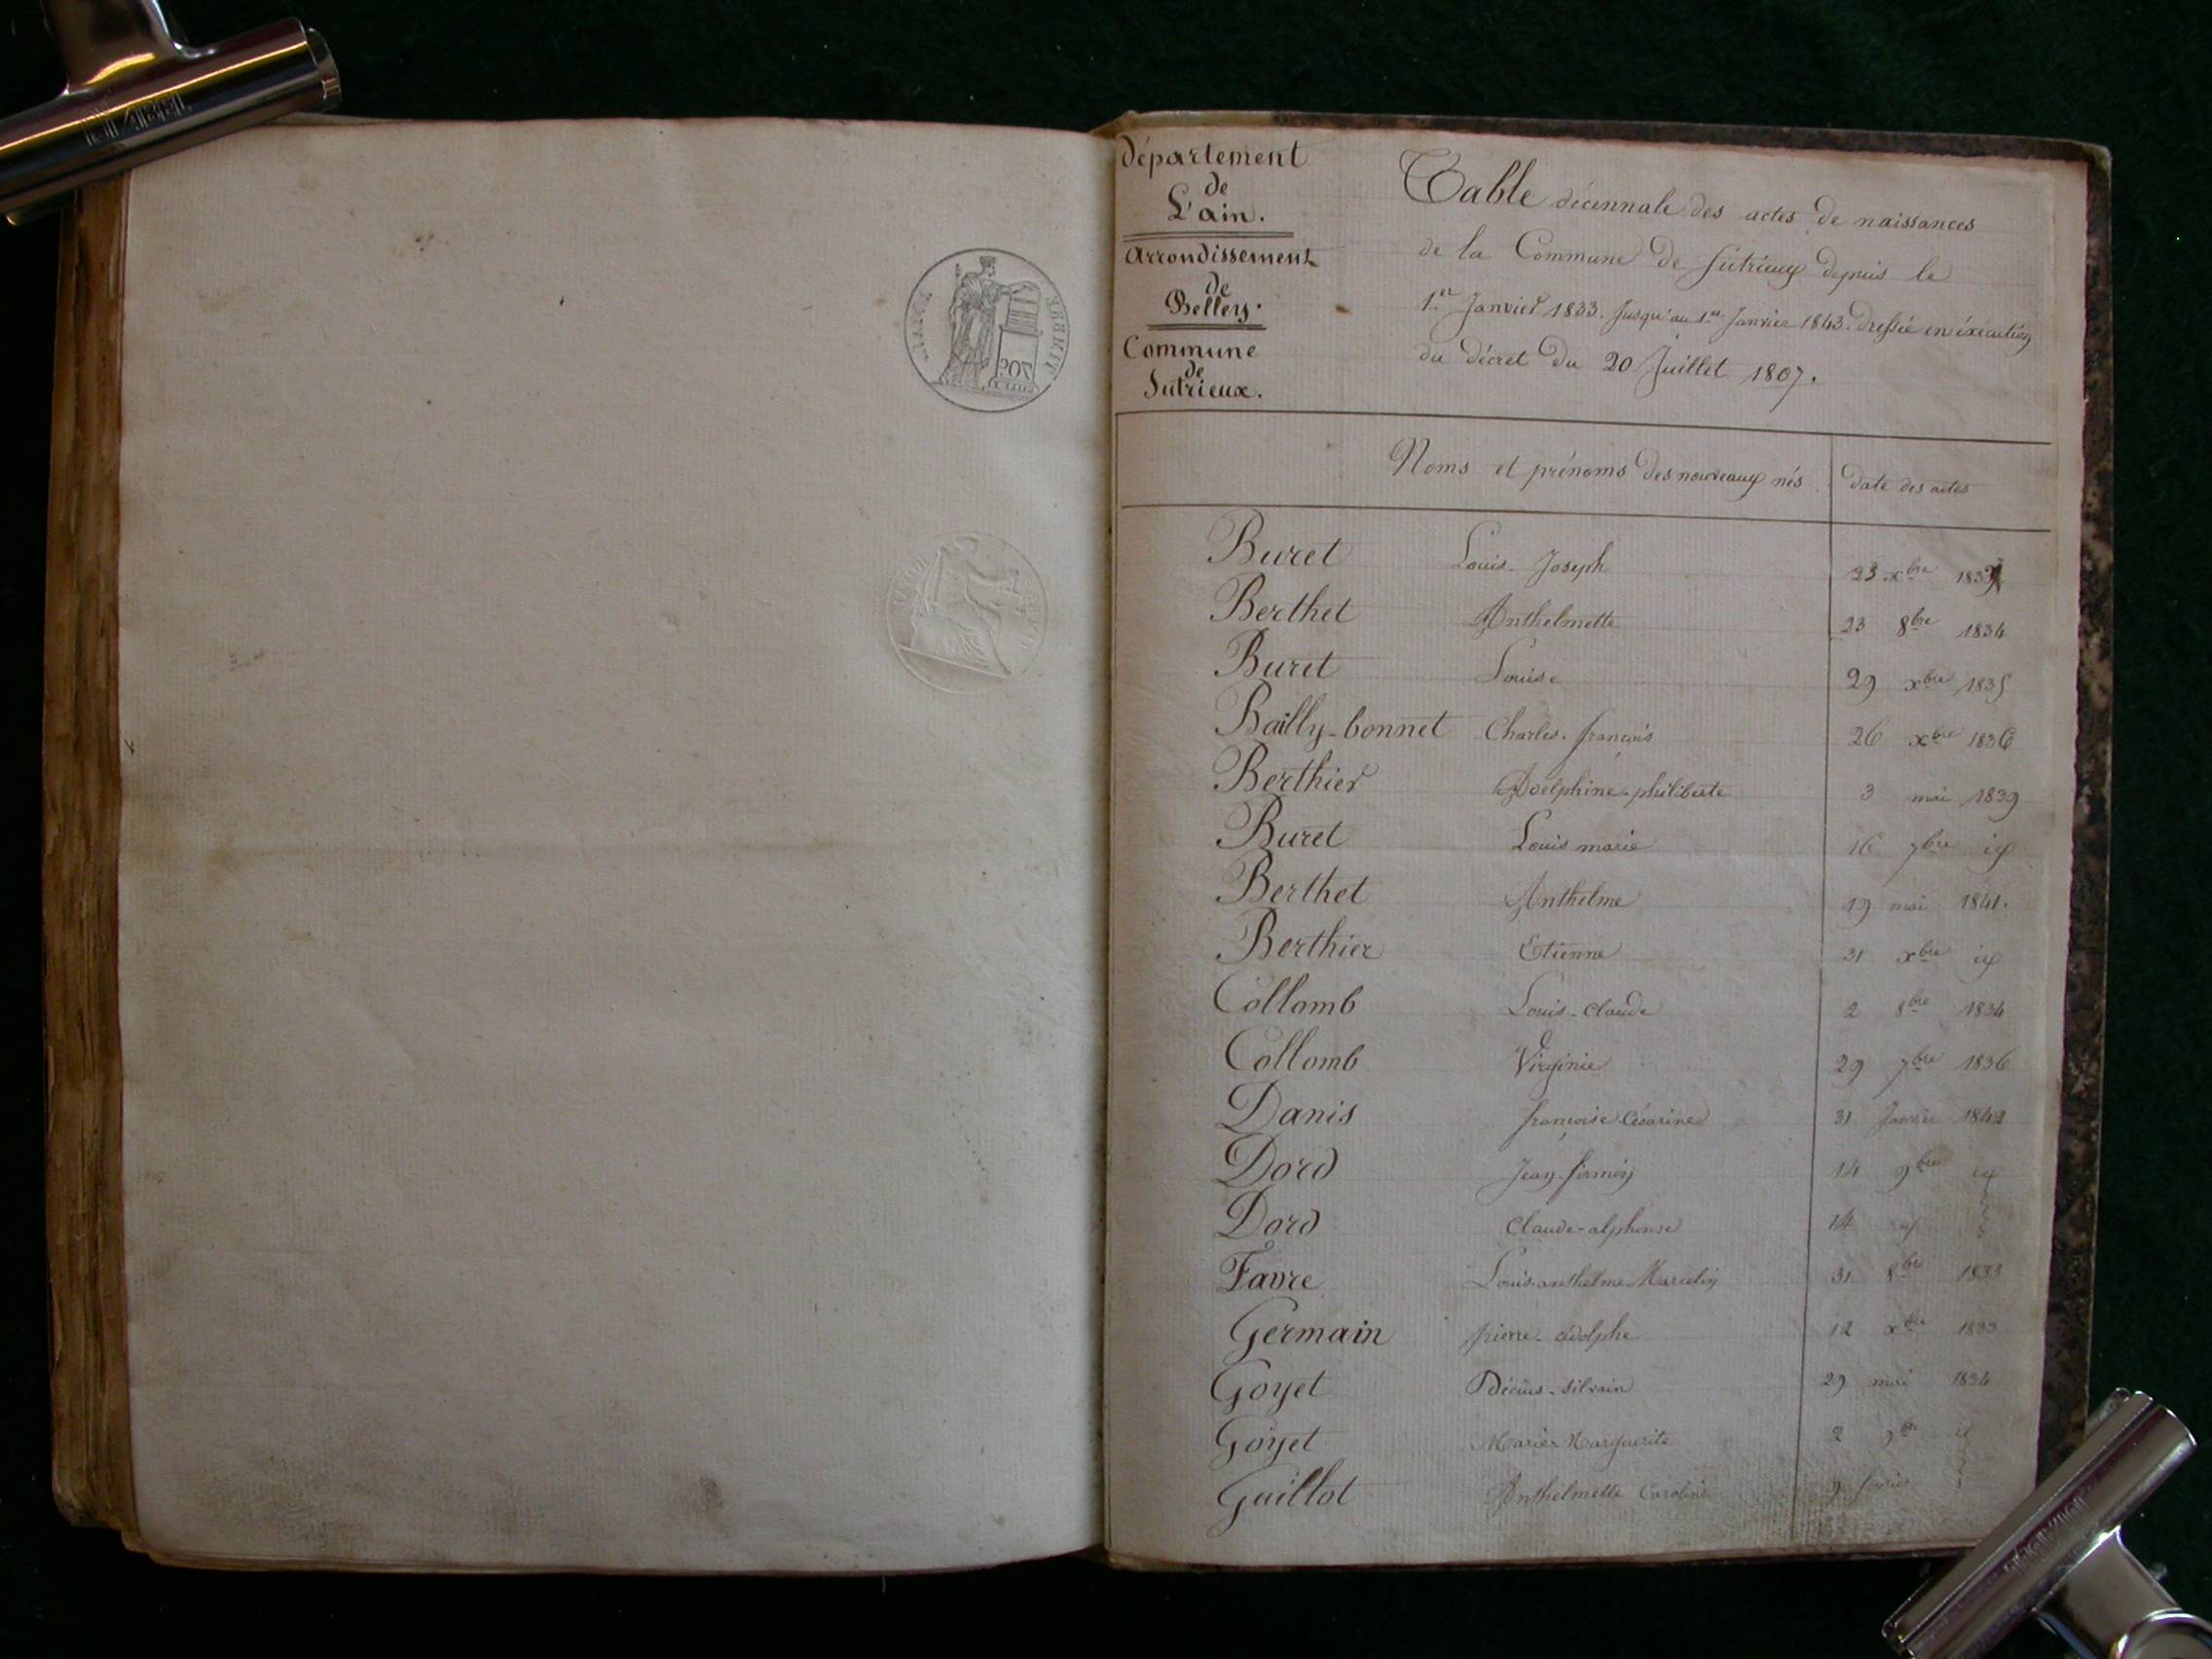 Département
de
L'ain.
Arrondissement
de
Belley.
Commune
de
Sutrieux.
Table décennale des actes de naissances
de la Commune de Sutrieux depuis le
1.er Janvier 1833. Jusqu'au 1.er Janvier 1843. dressée en éxécution
du décret du 20 Juillet 1807.
Noms et prénoms des nouveaux nés date des actes
Buret Louis-Joseph 23 xbre
Berthet Anthelmette 23 8bre 1834
Buret Louise 29 xbre 1835
Bailly-bonnet Charles-françois 26 xbre 1836
Berthier Adelphine-philiberte 3 mai 1839
Buret Louis marie 16 7bre id
Berthet Anthelme 19 mai 1841.
Berthier Etienne 31 xbre id
Collomb Louis-Claude 2 8bre 1834
Collomb Virginie 29 7bre 1836
Danis françoise Césarine 31 Janvier 1842
Dord Jean-firmin 14 9bre id
Dord Claude-alphonse 14 id
Favre Louis anthelme Marcelin 31 8bre 1833
Germain pierre-adolphe 12 xbre 1833
Goyet Décius-silvain 29 mai 1834
Goyet Marie-Marguerite 2 9bre id
Guillot Anthelmette Caroline 9